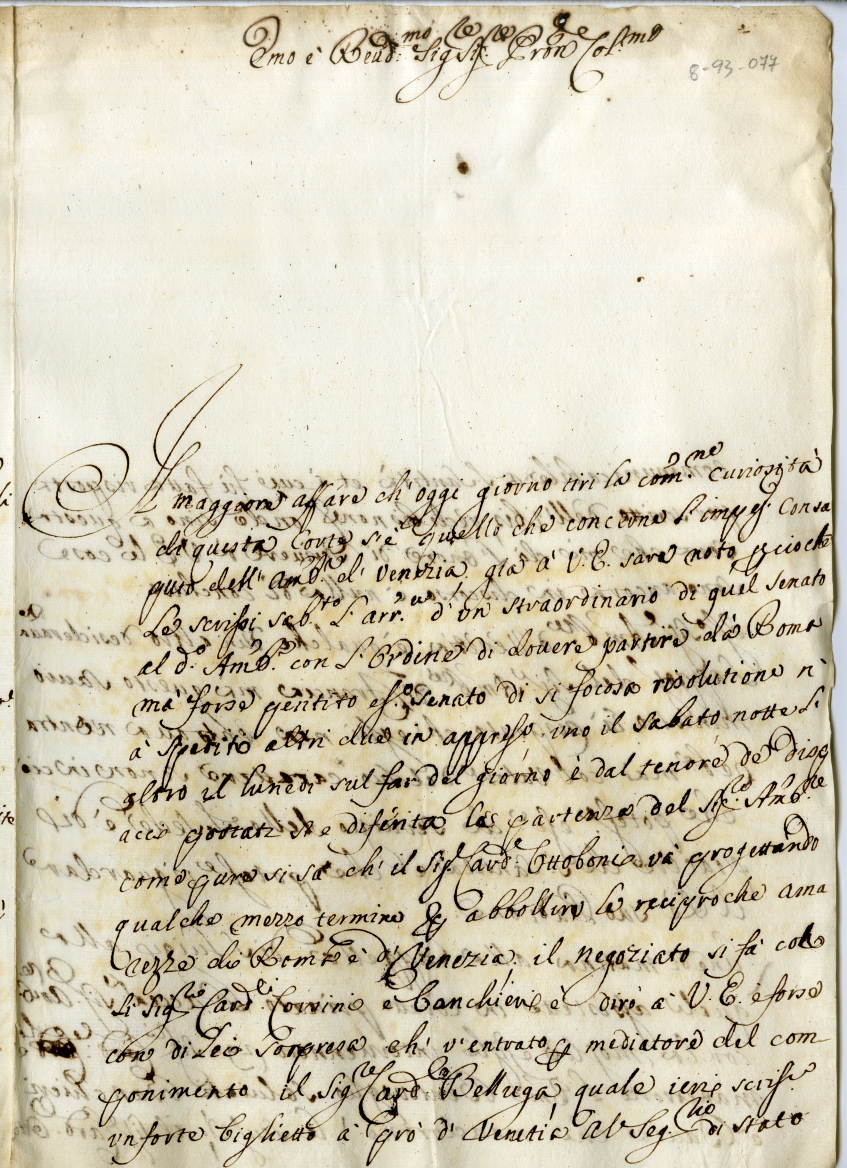 Emo è Reud.mo Sig.re Sig.re Pron Col.mo
8-93-077
Il maggiore affare ch' oggi giorno tiri la com.ne curiosità
di questa Corte s'è quello che concerne l'impeg.
quio dell' Amb.re di Venezia già à V. E. sarà noto perciochè
Le scrissi sab.to l'arr.uo d'un straordinario di quel senato
al d.o Amb.re con l'Ordine di douere partire da Roma
mà forse pentito esso senato di si focosa risolutione n'
à spedito altri due in appresso uno il sabato notte l'
altro il lunedi sul far del giorno è dal tenore de disp
acci portati si è diferita la partenza del Sig.re Amb.re
come pure si sà ch' il Sig.r Card. Ottoboni và progettando
qualche mezzo termine per abbollire le reciproche ama
rezze di Roma è di Venezia, il negoziato si fà col
li Sig.ri Card.li Corsini e Banchieri è dirò à V. E. è forse
con di Lei sorpresa ch' v'entrato per mediatore del com
ponimento il Sig.re Card.le Belluga quale ieri scrisse
un forte biglietto à prò di Venetia al Seg.rio di stato